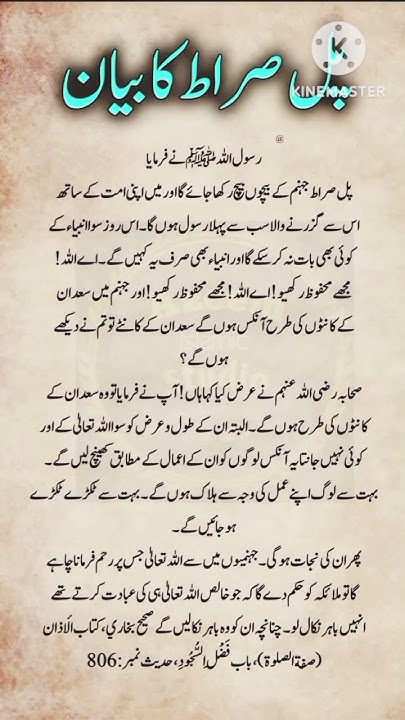 پل صراط کا بیان
KINEMASTER
@
رسول اللہ ﷺ نے فرمایا
پل صراط جہنم کے بیچوں بیچ رکھا جائے گا اور میں اپنی امت کے ساتھ
اس سے گزرنے والا سب سے پہلا رسول ہوں گا۔ اس روز سوا انبیاء کے
کوئی بھی بات نہ کر سکے گا اور انبیاء بھی صرف یہ کہیں گے۔ اے اللہ!
مجھے محفوظ رکھیو! اے اللہ! مجھے محفوظ رکھیو! اور جہنم میں سعدان
کے کانٹوں کی طرح آنکس ہوں گے سعدان کے کانٹے تو تم نے دیکھے
ہوں گے؟
صحابہ رضی اللہ عنہم نے عرض کیا کہ ہاں! آپ نے فرمایا تو وہ سعدان کے
کانٹوں کی طرح ہوں گے۔ البتہ ان کے طول و عرض کو سوا اللہ تعالیٰ کے اور
کوئی نہیں جانتا یہ آنکس لوگوں کو ان کے اعمال کے مطابق کھینچ لیں گے۔
بہت سے لوگ اپنے عمل کی وجہ سے ہلاک ہوں گے۔ بہت سے ٹکڑے ٹکڑے
ہو جائیں گے۔
پھر ان کی نجات ہو گی۔ جہنمیوں میں سے اللہ تعالیٰ جس پر رحم فرمانا چاہے
گا تو ملائکہ کو حکم دے گا کہ جو خالص اللہ تعالیٰ ہی کی عبادت کرتے تھے
انہیں باہر نکال لو۔ چنانچہ ان کو وہ باہر نکالیں گے صحیح بخاری، کتاب الأذان
(صفة الصلوة)، باب فَضْلِ السُّجُودِ، حدیث نمبر: 806